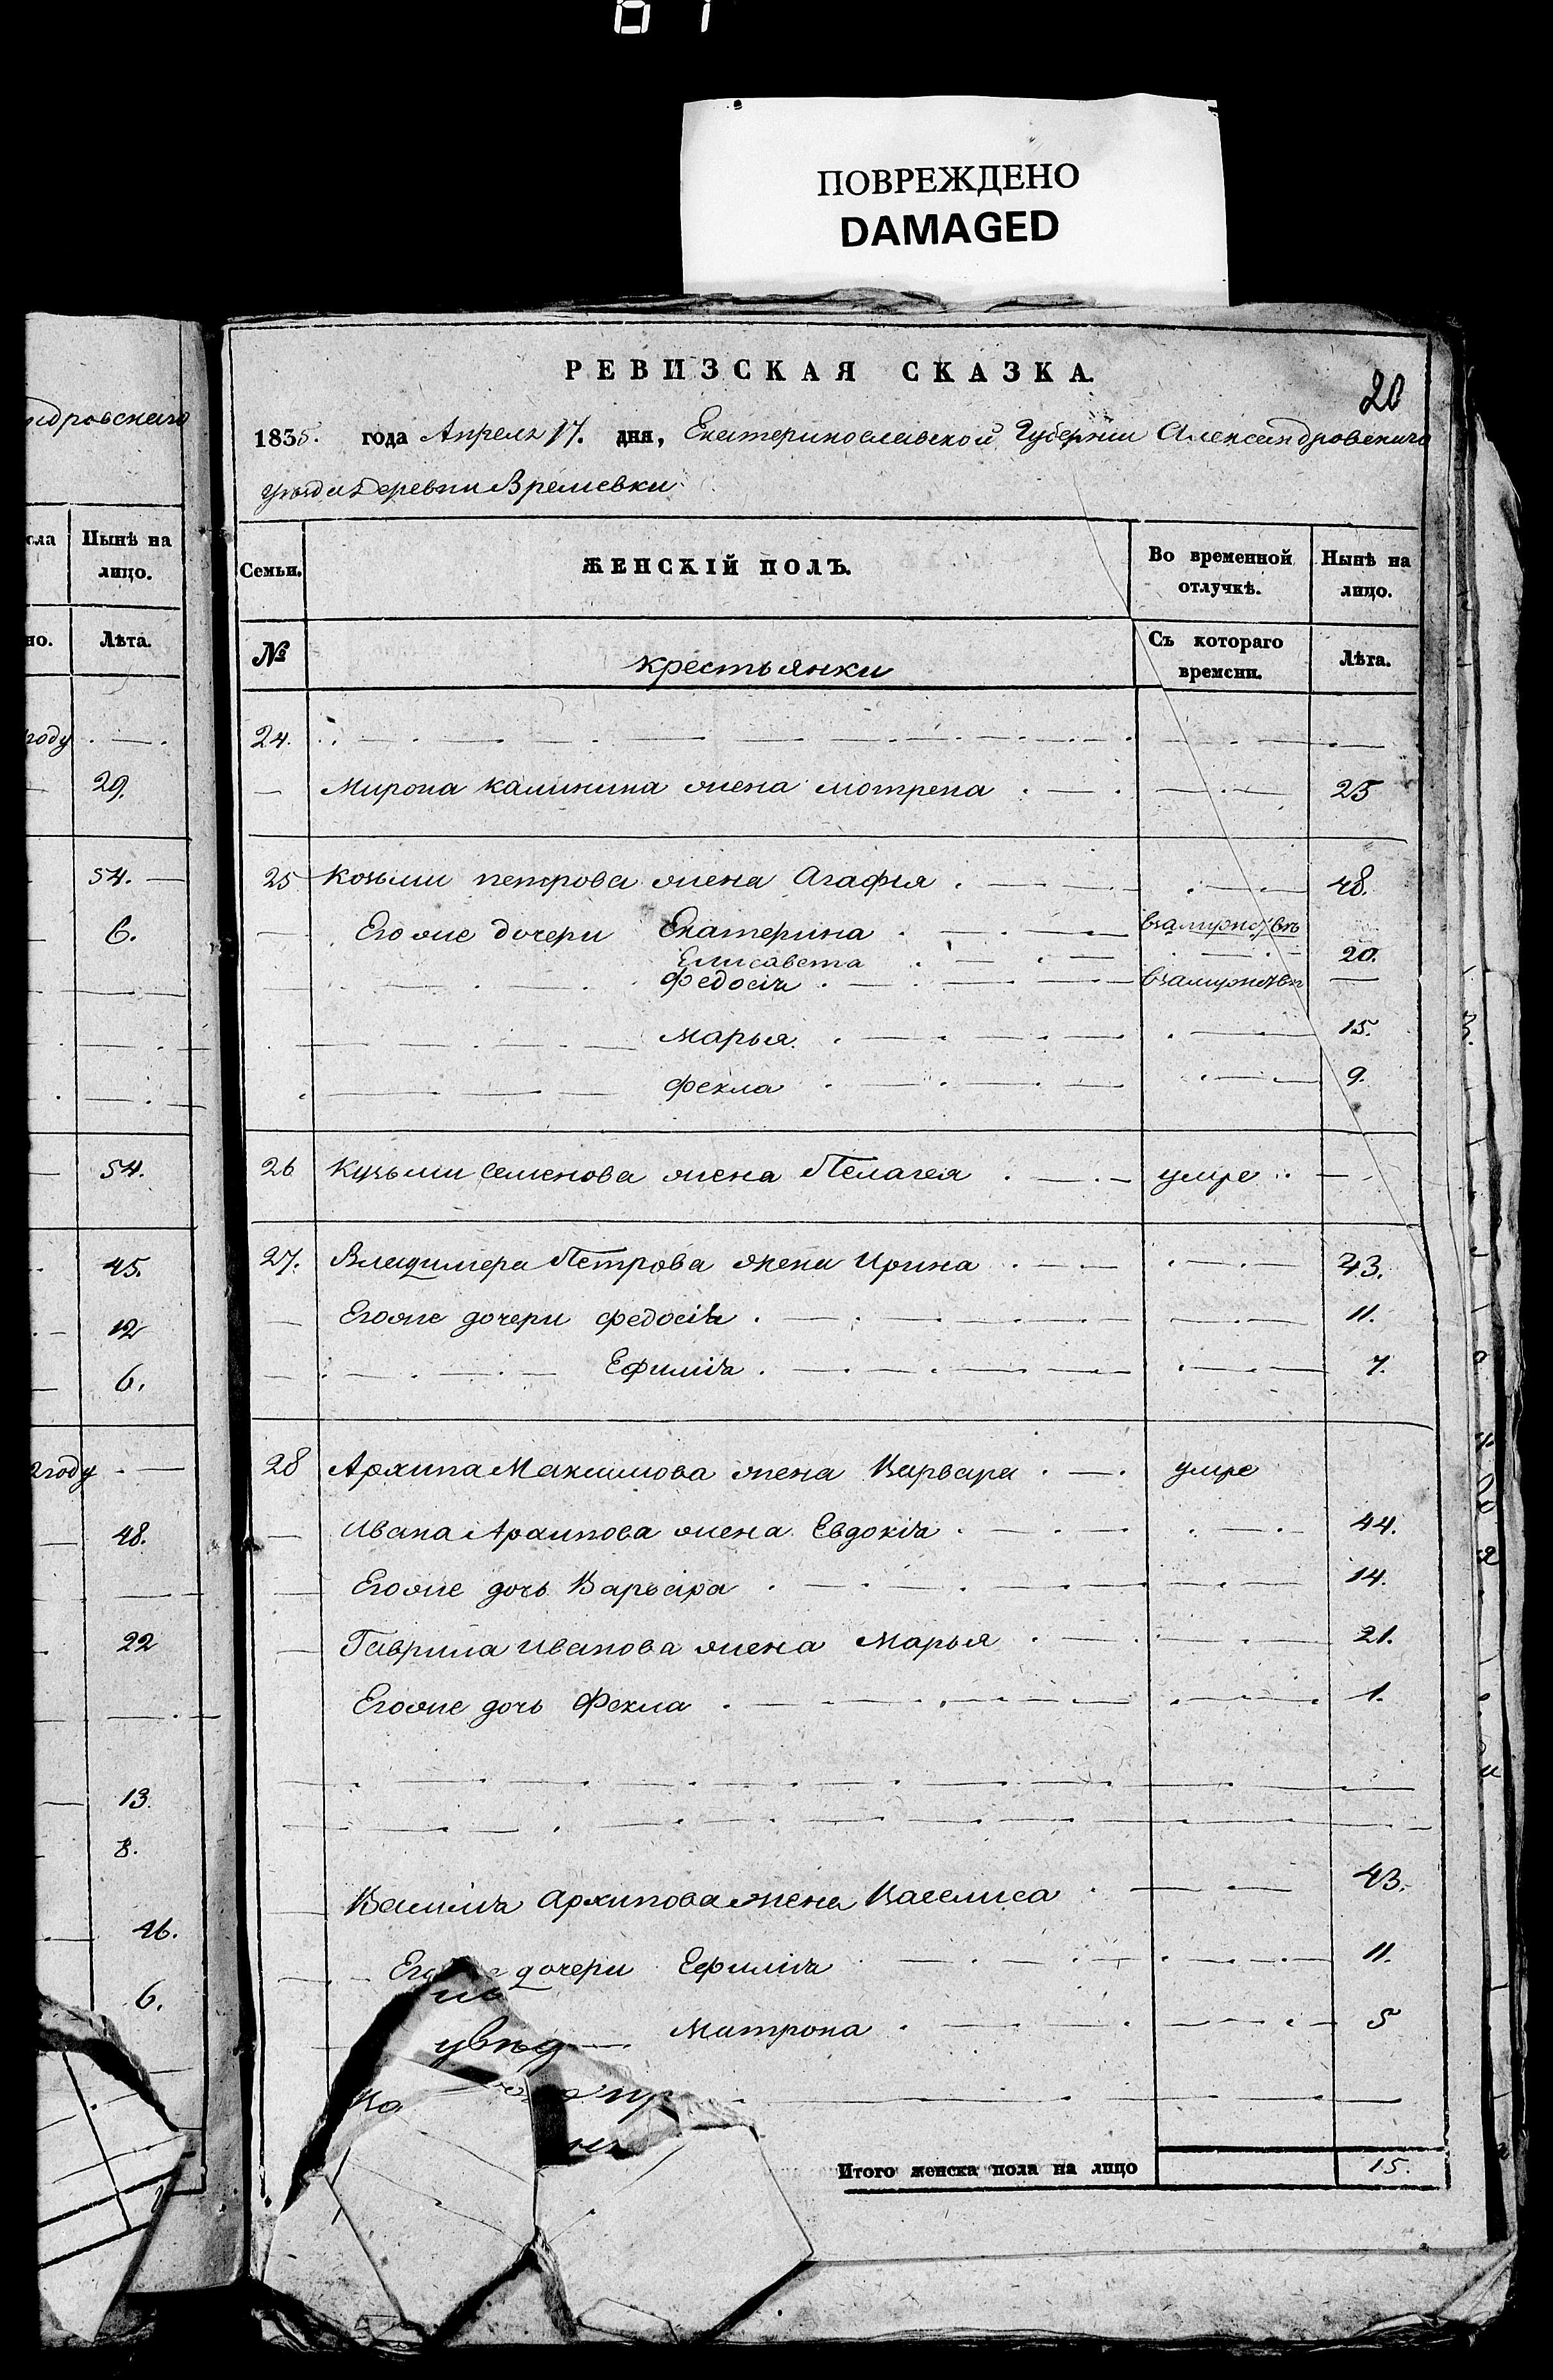 ПОВРЕЖДЕНО
DAMAGED
РЕВИЗСКАЯ СКАЗКА.
20
1835. года Апреля 17. дня, Екатеринославской Губернии Александровскаго
уезда деревни Времевки
ндровскаго
Нынѣ на лицо.
но.
Лѣта.
году
29.
54.
6.
54.
45.
12
6.
году
48.
22
13.
8.
46.
6.
Семьи.
ЖЕНСКІЙ ПОЛЪ.
Во временной отлучкѣ.
Нынѣ на лицо.
№
крестьянки
Съ котораго времени.
Лѣта.
24.
Мирона калинина жена мотрена 25
25 Козьми петрова жена Агафия 48.
Его же дочери Екатерина взамужствѣ
Елисавета 20.
Федосія взамужствѣ
марья 15.
фекла 9.
26 Кузьми Семенова жена Пелагея умре
27. Владимера Петрова жена Ирина 43.
Его же дочери федосія 11.
Ефимія 7.
28 Архипа Максимова жена Варвара умре
Ивана Архипова жена Евдокія 44.
Его же дочь Варвара 14.
Гаврила иванова жена марья 21.
Его же дочь Фекла 1.
Василія архипова жена Васелиса 43.
дочери Ефимія 11.
Матрона 5
Итого женска пола на лицо 15.